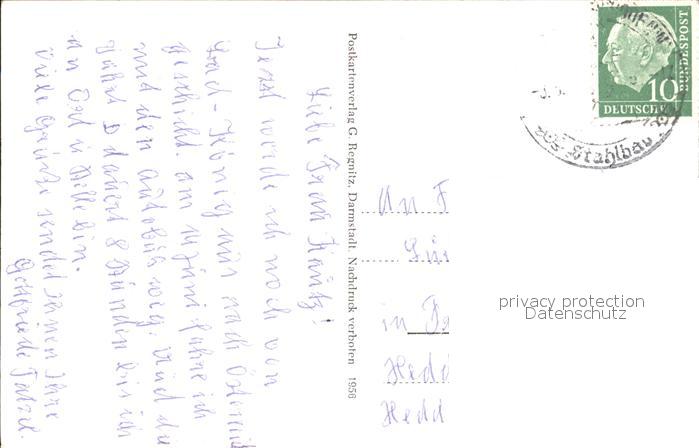 Liebe Frau Kautz!
Jetzt werde ich noch von
Bad-König nur nach Österreich
geschickt. am 11 Juni fahre ich
mit den autobus weg. Und die
Fahrt dauert 8 Stunden bis ich
an Ort u Stelle bin.
Viele Grüße sendet Ihnen Ihre
Gottfriede
Postkartenverlag G. Regnitz, Darmstadt. Nachdruck verboten 1956
An F
in
Hedd
Hedd
10
DEUTSCHE
BUNDESPOST
Stahlbau
privacy protection
Datenschutz